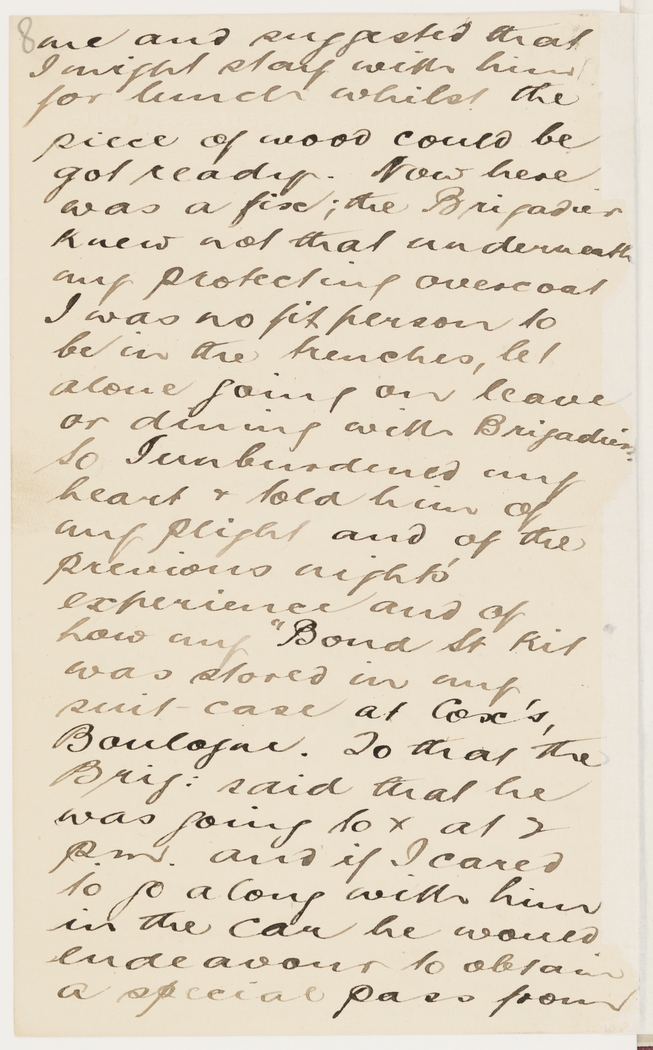 8
me and suggested that
I might stay with him
for lunch whilst the
piece of wood could be
got ready. Now here
was a fix; the Brigadier
knew not that underneath
my protecting overcoat
I was no fit person to
be in the trenches, let
alone going on leave
or dining with Brigadiers.
So I unburdened my
heart & told him of
my plight and of the
previous night's
experience and of
how my "Bond St Kit
was stored in my
suit-case at Cox's,
Boulogne. To that the
Brig: said that he
was going to X at 2
p.m. and if I cared
to go along with him
in the car he would
endeavour to obtain
a special pass from